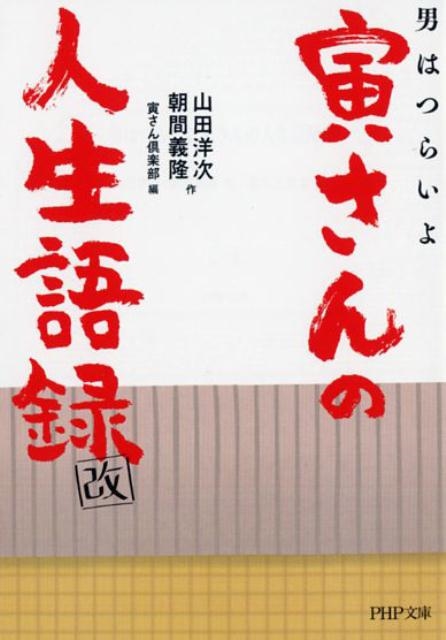 男はつらいよ
寅さんの
人生語録
改
山田洋次
朝間義隆 作
寅さん倶楽部 編
PHP文庫